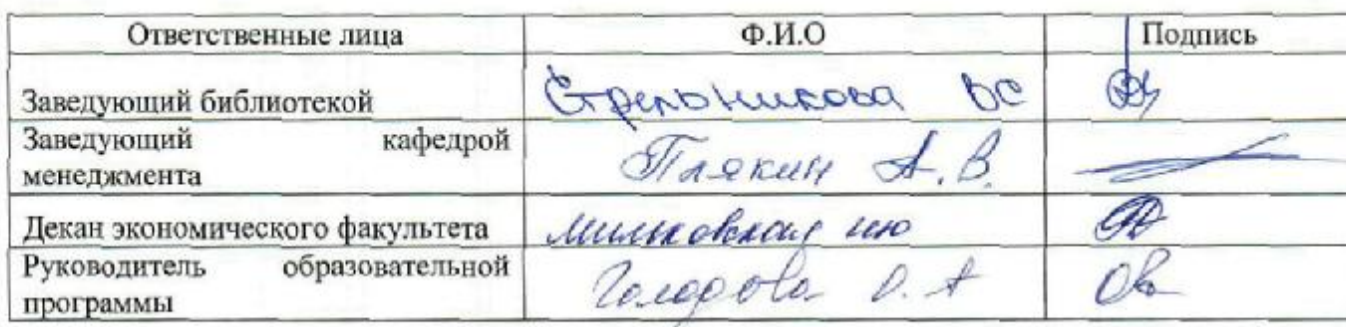 Ответственные лица Ф.И.О Подпись
Заведующий библиотекой Стрельникова ВС
Заведующий кафедрой
менеджмента Плякин А.В.
Декан экономического факультета Мильковская ию
Руководитель образовательной
программы О.А